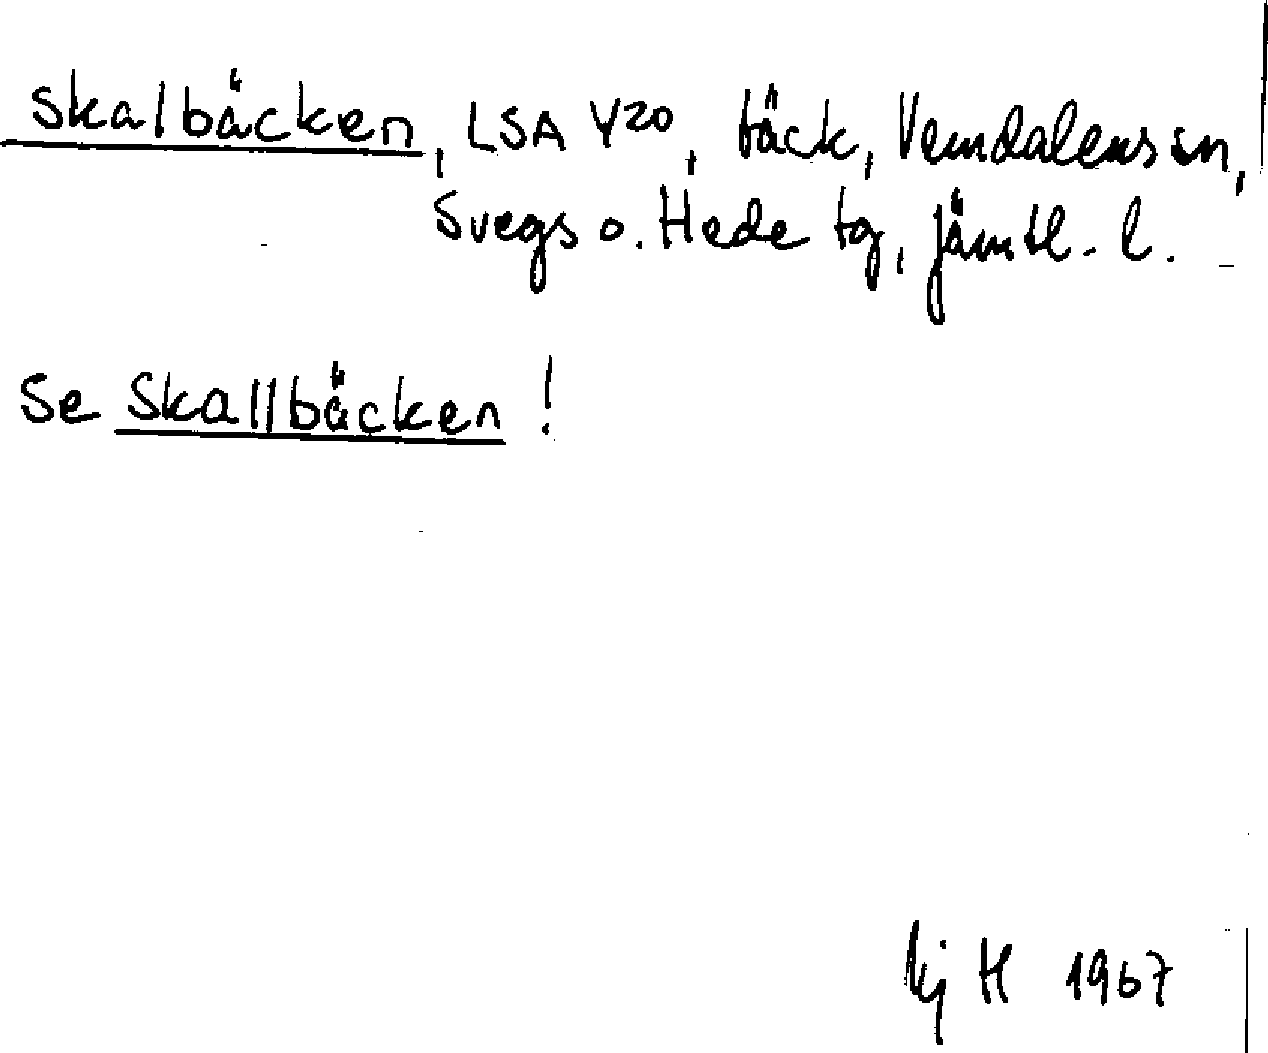 Skalbäcken, LSA Y20, bäck, Vemdalens sn,
Svegs o. Hede tg, Jämtl. l.
Se Skallbäcken!
H 1967